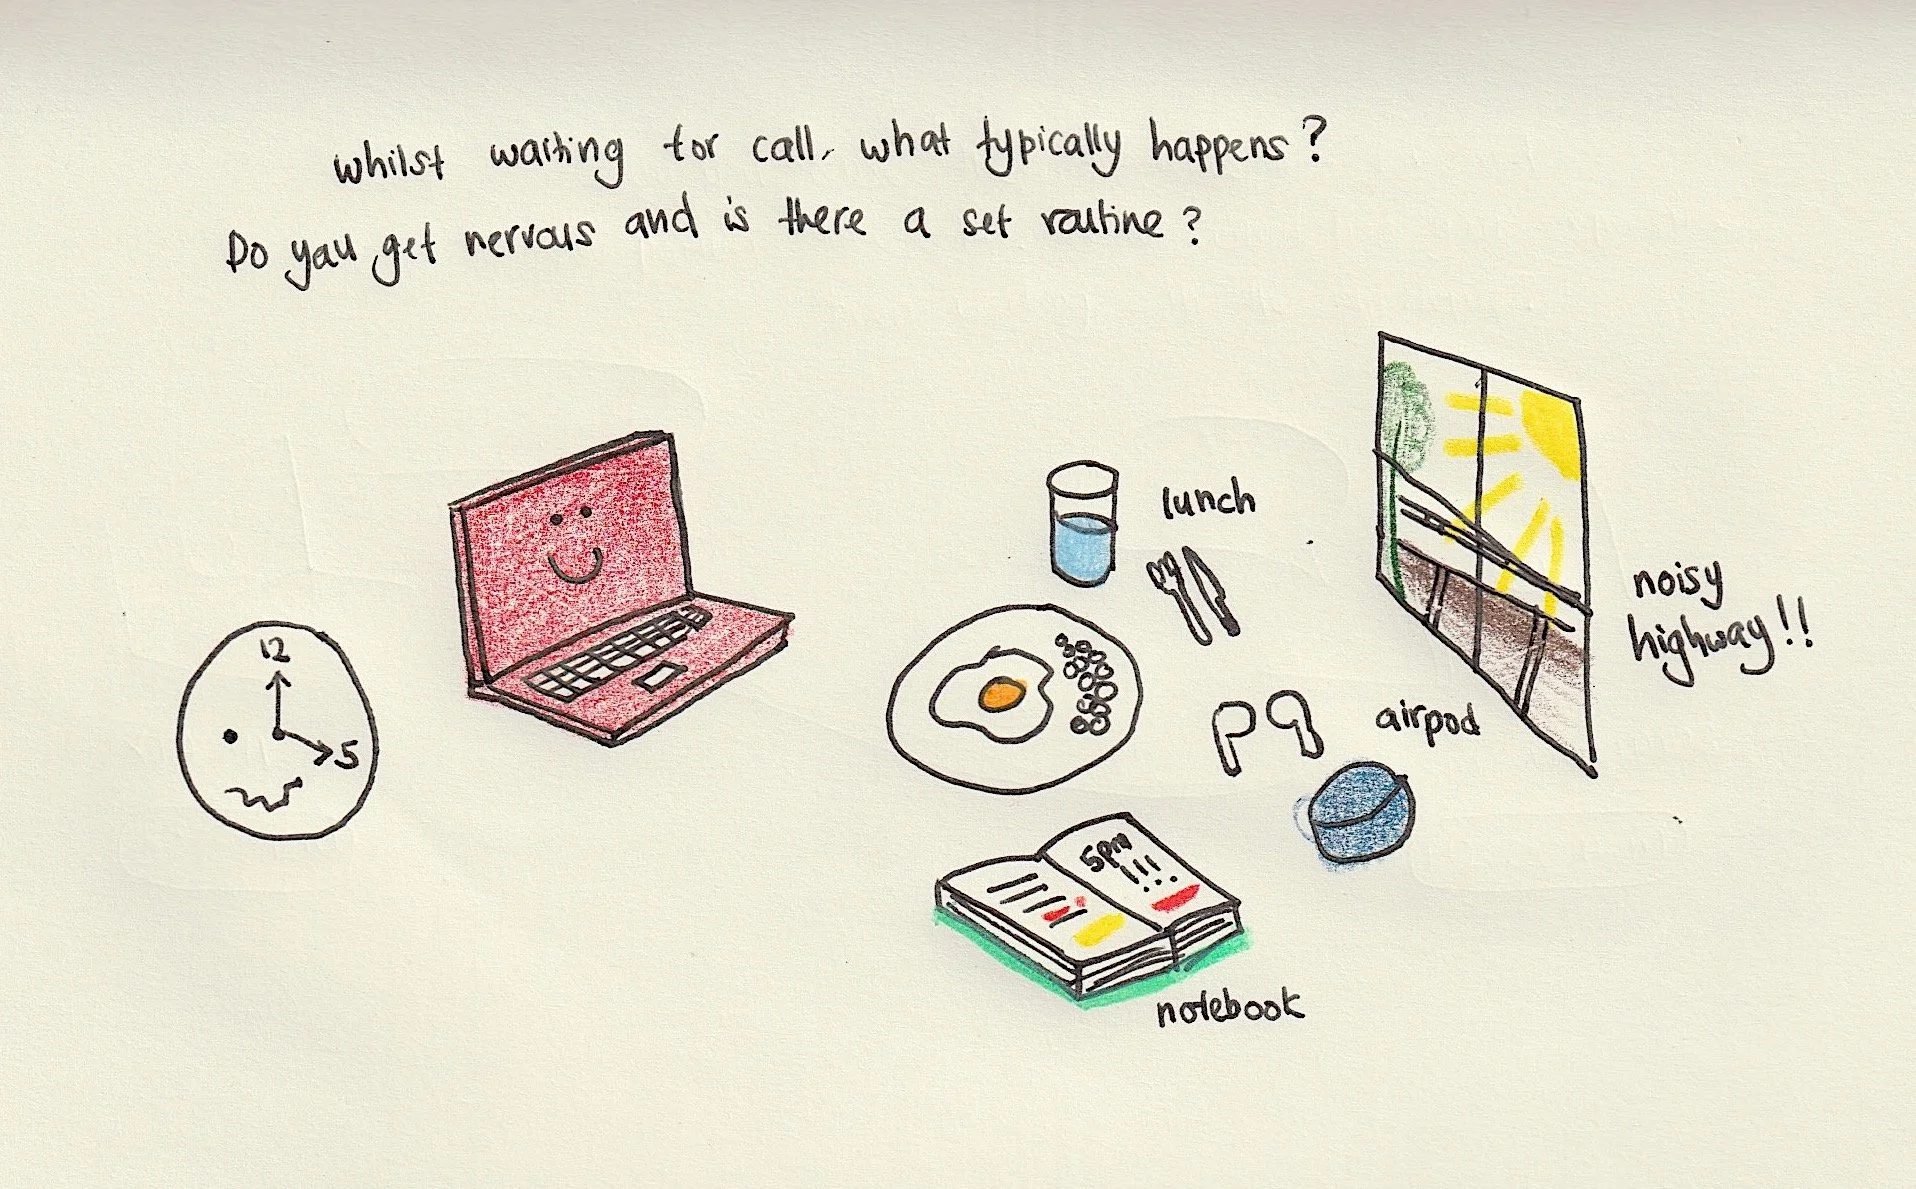 whilst waiting for call, what typically happens?
Do you get nervous and is there a set routine?
lunch
12
5
noisy
highway!!
airpod
5pm
!!!
notebook